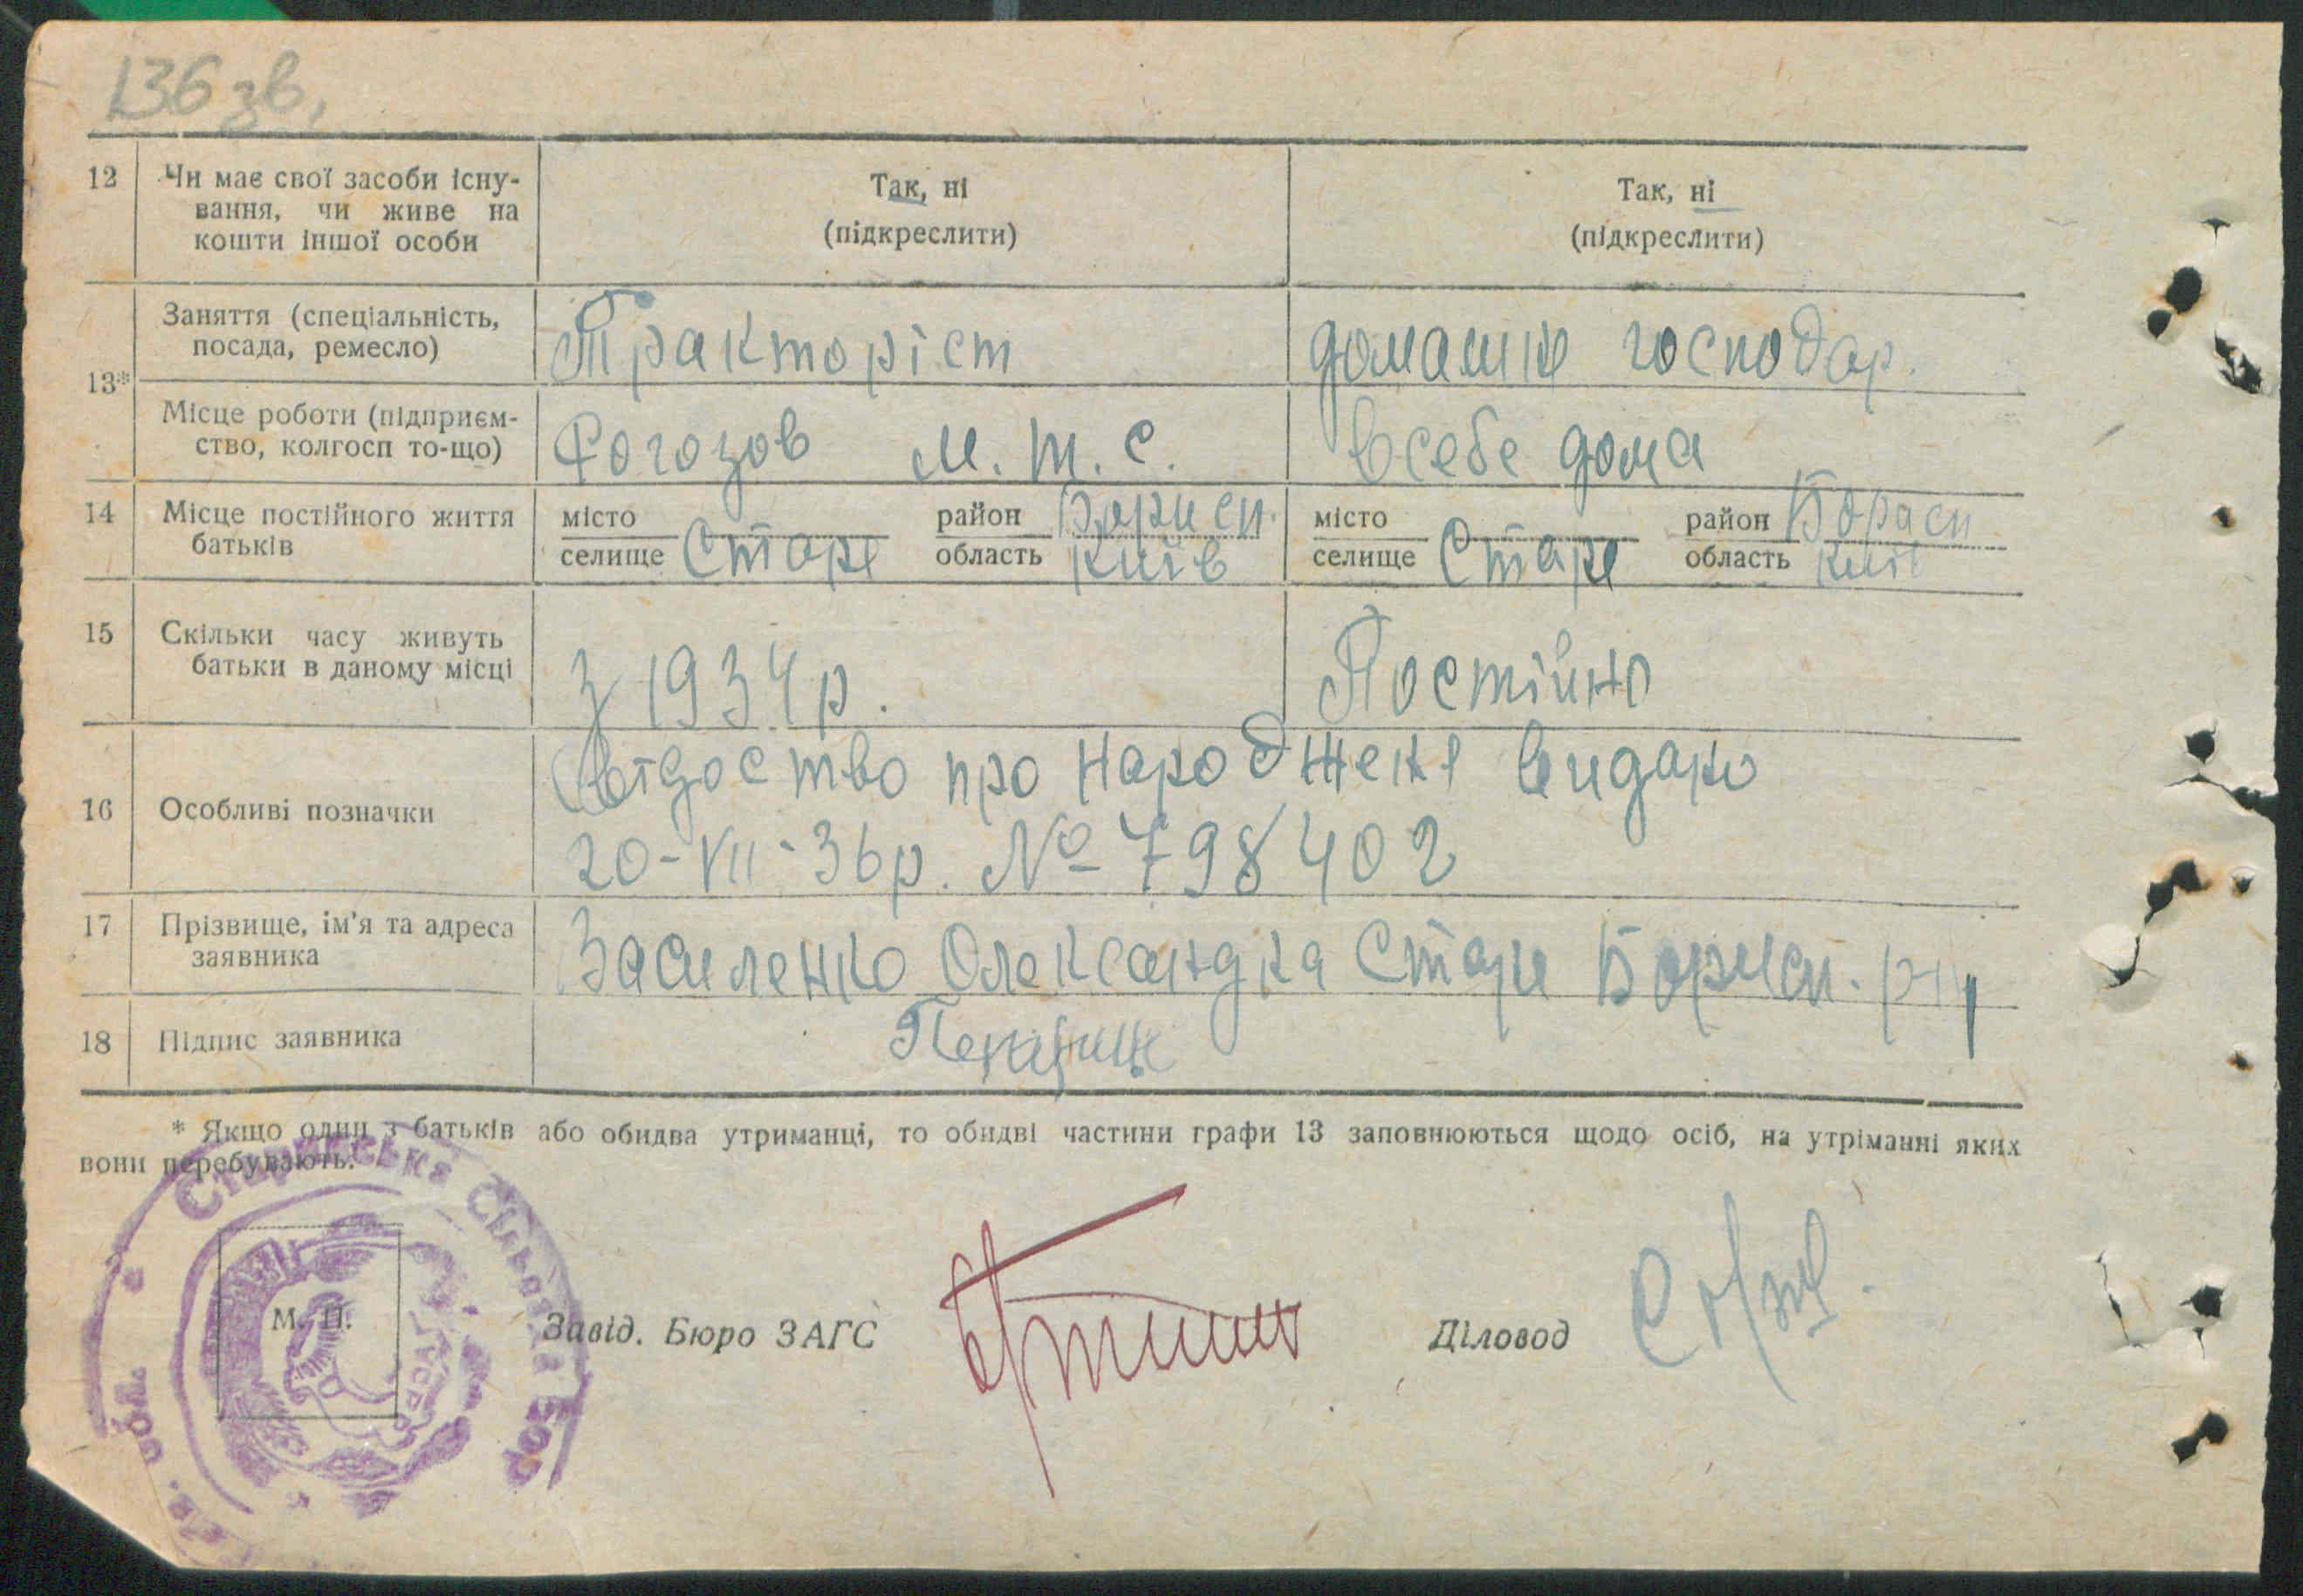 136 зв.
12 Чи має свої засоби існу-
вання, чи живе на
кошти іншої особи
Так, ні
(підкреслити)
Так, ні
(підкреслити)
13*
Заняття (спеціальність,
посада, ремесло)
Тракторіст
домашнє господар.
Місце роботи (підприєм-
ство, колгосп то-що)
Рогозов М.т.с.
в себе дома
14 Місце постійного життя
батьків
місто
селище Старе
район Борисп.
область Київ
місто
селище Старе
район Борисп
область Київ
15 Скільки часу живуть
батьки в даному місці
З 1934 р.
Постійно
16 Особливі позначки
Свідоство про народженя видано
20-VII-36р. № 798402
17 Прізвище, ім'я та адреса
заявника
Василенко Олександра Старе Борисп. р-ну
18 Підпис заявника
* Якщо один з батьків або обидва утриманці, то обидві частини графи 13 заповнюються щодо осіб, на утріманні яких
вони перебувають.
М. П.
Завід. Бюро ЗАГС
Діловод